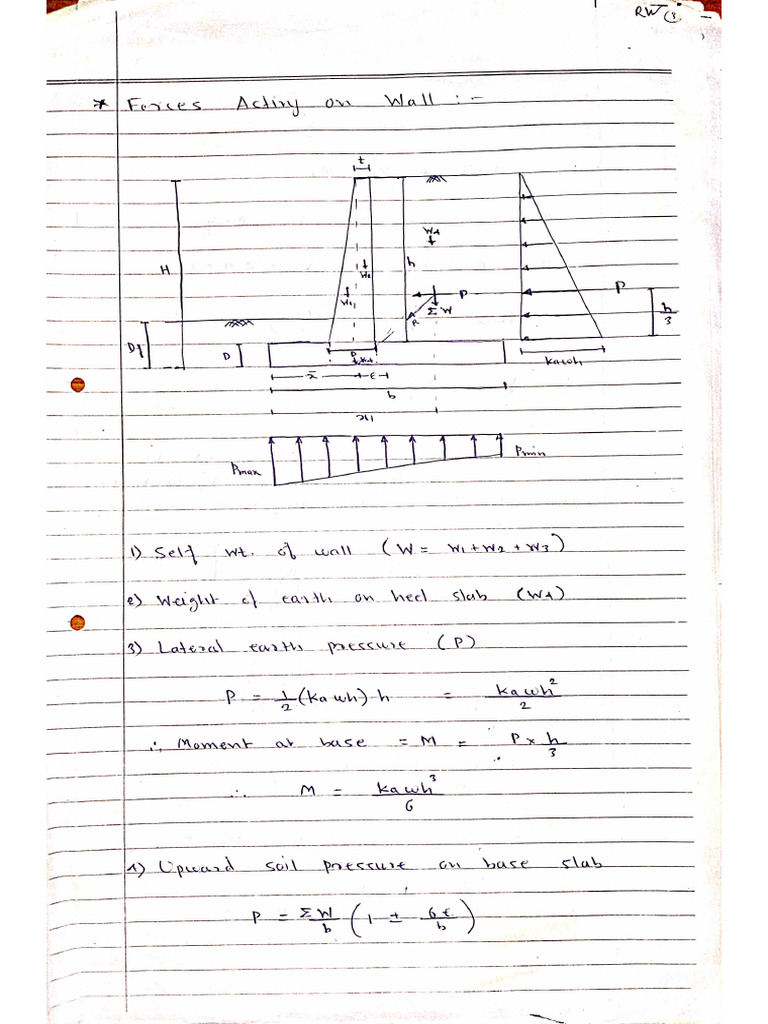 RW 3
* Forces Acting on Wall :-
t
W4
H
h
W2
W1
P
P
ΣW
R
h/3
Df
D
D
kawh
x̄
e
b
x1
Pmax
Pmin
1) Self wt. of wall (W = W1 + W2 + W3)
2) Weight of earth on heel slab (W4)
3) Lateral earth pressure (P)
P = 1/2 (ka wh) h = kawh²/2
∴ Moment at base = M = P × h/3
∴ M = kawh³/6
4) Upward soil pressure on base slab
P = ΣW/b (1 ± 6e/b)